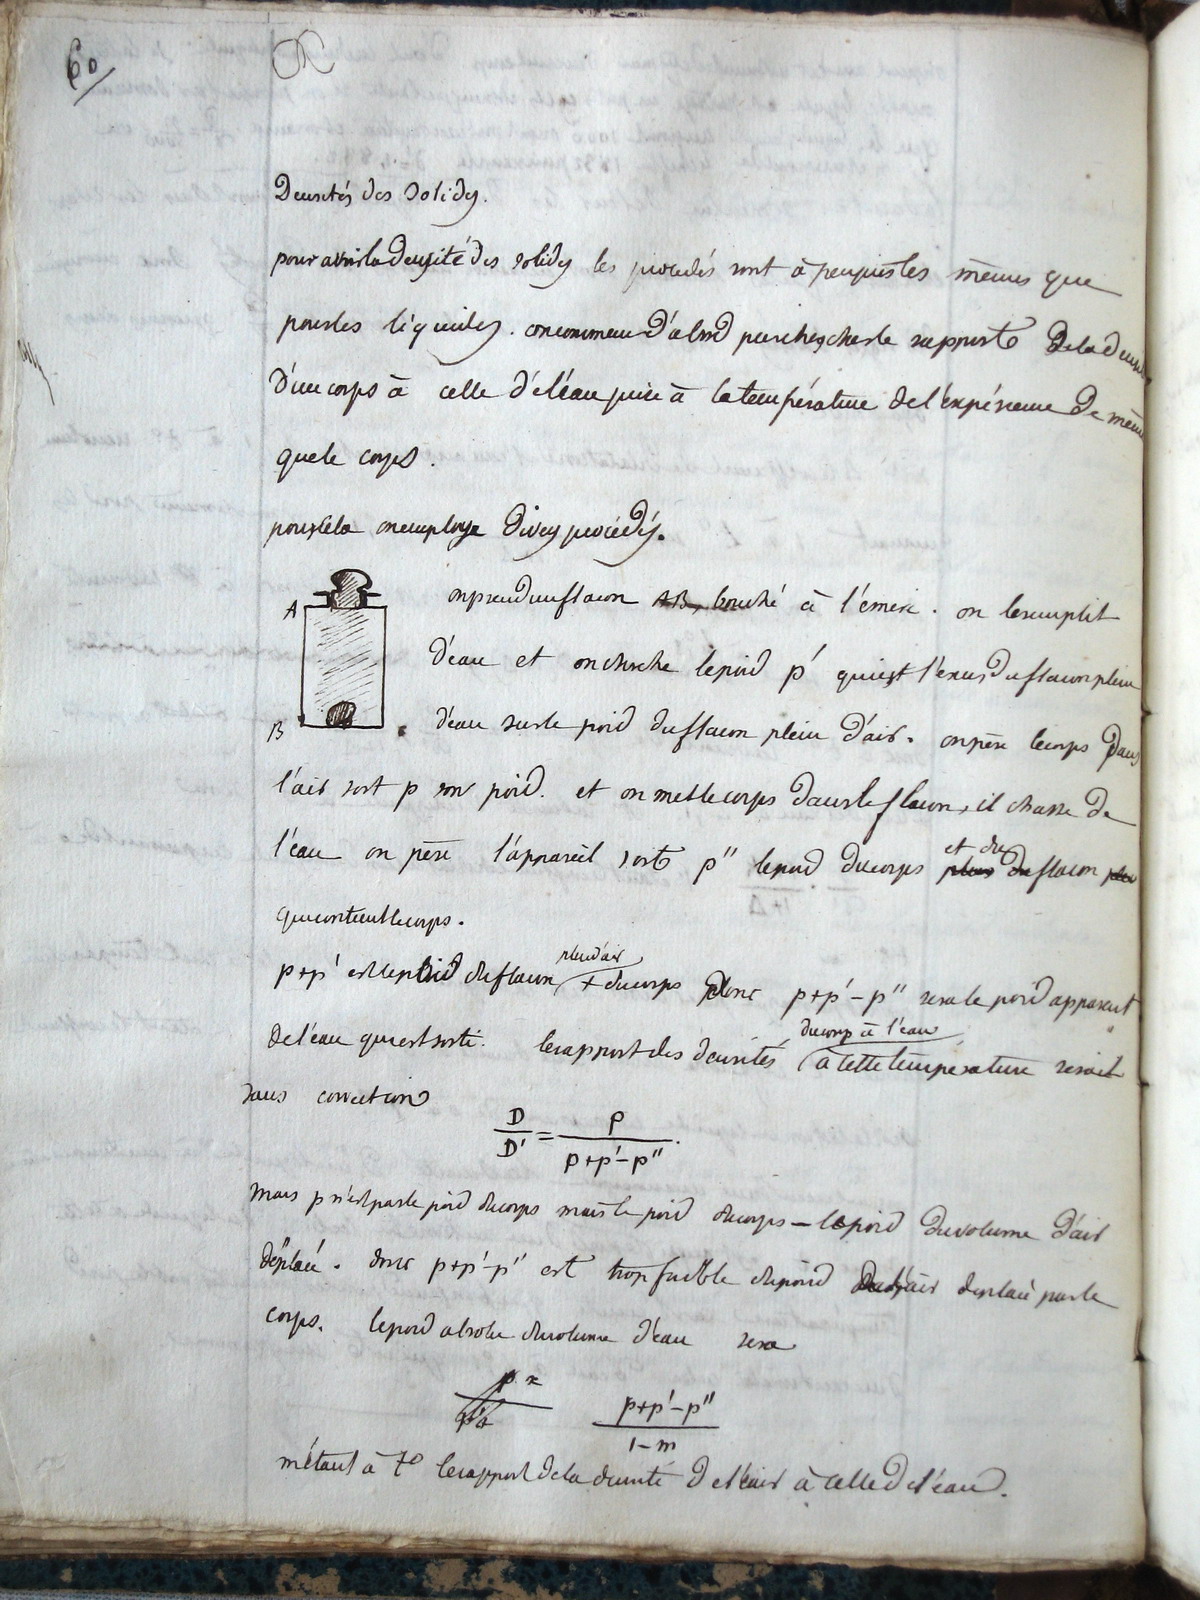 60
Densités des Solides.
pour avoir la densité des solides les procédés sont à peu près les mêmes que
pour les liquides. on commence d'abord par chercher le rapport de la densi
d'un corps à celle de l'eau prise à la température de l'expérience de même
que le corps.
pour cela on employe divers procédés.
A
on prend un flacon AB, bouché à l'émeri. on le remplit
d'eau et on cherche le poid p' qui est l'excès du flacon plein
B
d'eau sur le poid du flacon plein d'air. on pèse le corps dans
l'air soit p son poid. et on met le corps dans le flacon, il chasse de
l'eau on pèse l'appareil soit p'' le poid du corps plus du et du flacon
qui contient le corps.
p+p' est le poid du flacon plein d'air + du corps donc p+p'-p'' sera le poid apparent
de l'eau qui est sortie. le rapport des densités du corp à l'eau à cette température serait
sans correction
D/D' = p/(p+p'-p'').
mais p n'est pas le poid du corps mais le poid du corps - le poid du volume d'air
déplacé. donc p+p'-p'' est trop faible du poid air déplacé par le
corps. le poid absolu du volume d'eau sera
(p+p'-p'')/(1-m)
m étant à t° le rapport de la densité de l'air à celle de l'eau.